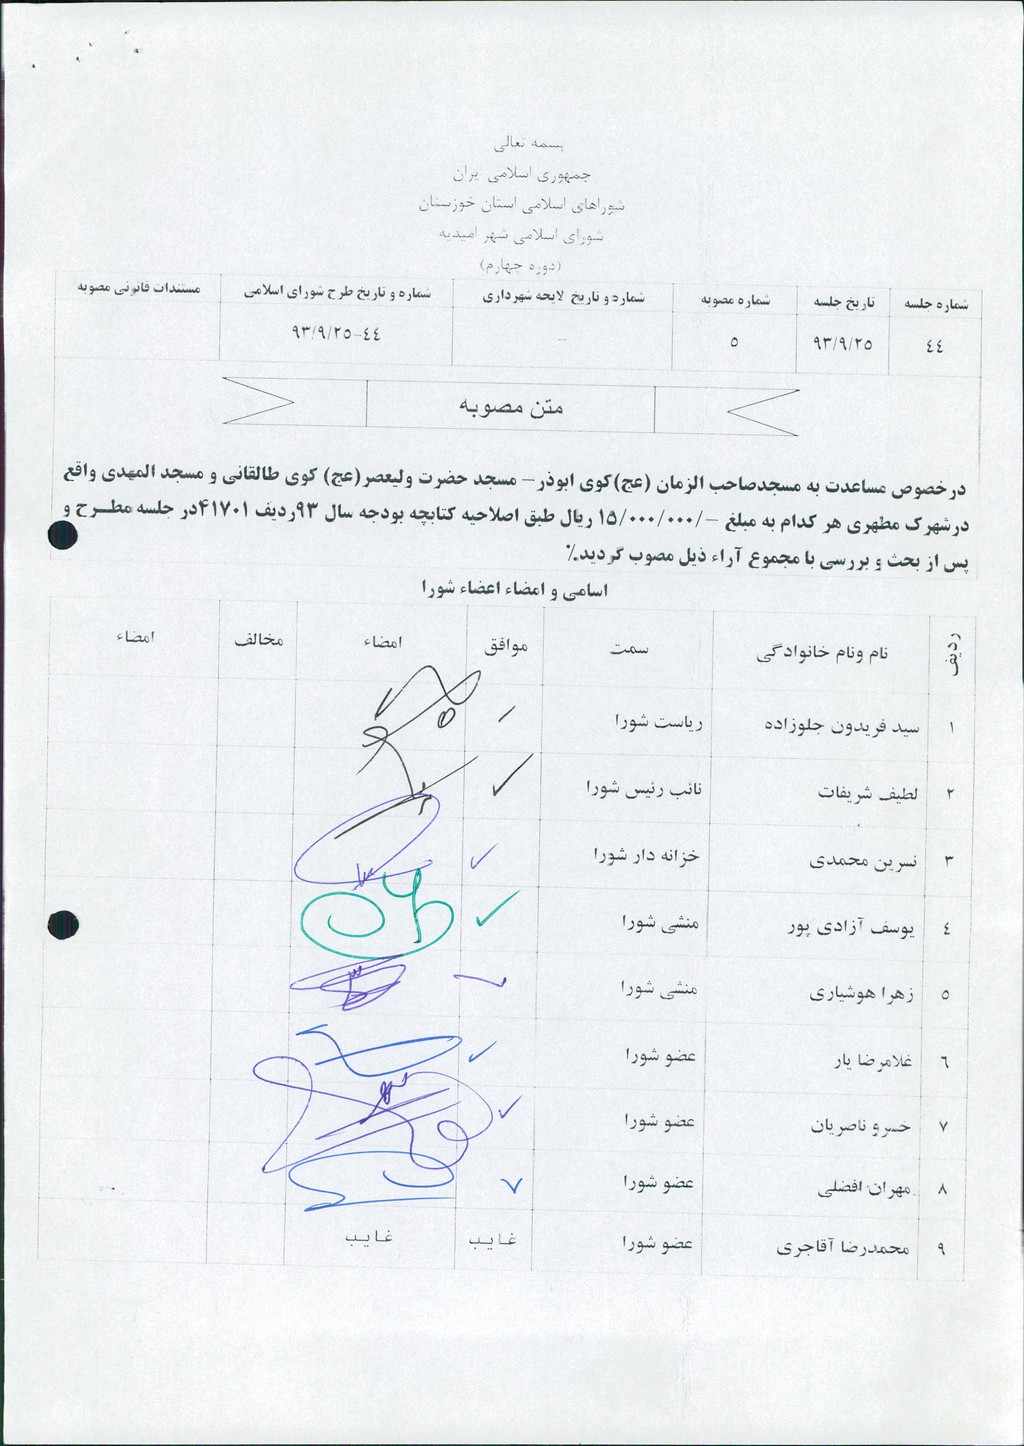 بسمه تعالی
جمهوری اسلامی ایران
شوراهای اسلامی استان خوزستان
شورای اسلامی شهر امیدیه
(دوره چهارم)
شماره جلسه تاریخ جلسه شماره مصوبه شماره و تاریخ لایحه شهرداری شماره و تاریخ طرح شورای اسلامی مستندات قانونی مصوبه
٤٤ ۹۳/۹/۲٥ ٥ – ۹۳/۹/۲٥-٤٤
متن مصوبه
درخصوص مساعدت به مسجدصاحب الزمان (عج)کوی ابوذر– مسجد حضرت ولیعصر(عج) کوی طالقانی و مسجد المهدی واقع
درشهرک مطهری هر کدام به مبلغ –/۱٥/۰۰۰/۰۰۰ ریال طبق اصلاحیه کتابچه بودجه سال ۹۳ردیف ۴۱۷۰۱در جلسه مطـرح و
پس از بحث و بررسی با مجموع آراء ذیل مصوب گردید.٪
اسامی و امضاء اعضاء شورا
ردیف نام ونام خانوادگی سمت موافق امضاء مخالف امضاء
۱ سید فریدون جلوزاده ریاست شورا ✓
۲ لطیف شریفات نائب رئیس شورا ✓
۳ نسرین محمدی خزانه دار شورا ✓
٤ یوسف آزادی پور منشی شورا ✓
٥ زهرا هوشیاری منشی شورا ✓
٦ غلامرضا یار عضو شورا ✓
۷ خسرو ناصریان عضو شورا ✓
۸ مهران افضلی عضو شورا ✓
۹ محمدرضا آقاجری عضو شورا غایب غایب